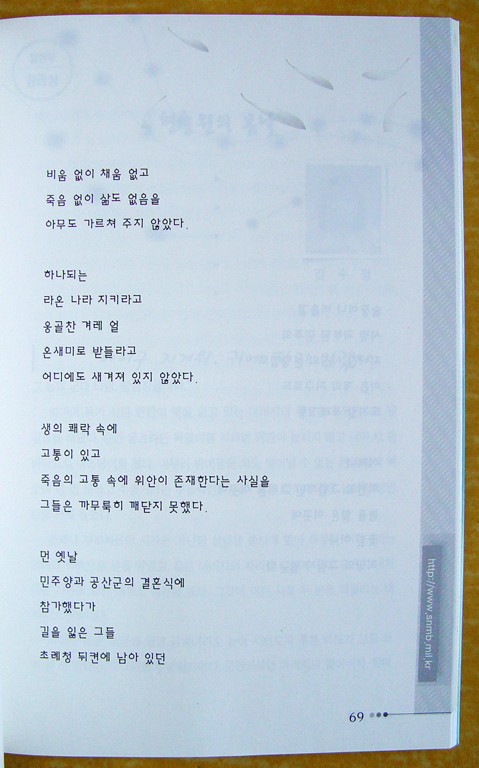 비움 없이 채움 없고
죽음 없이 삶도 없음을
아무도 가르쳐 주지 않았다.
하나되는
라온 나라 지키라고
옹골찬 겨레 얼
온새미로 받들라고
어디에도 새겨져 있지 않았다.
생의 쾌락 속에
고통이 있고
죽음의 고통 속에 위안이 존재한다는 사실을
그들은 까무룩히 깨닫지 못했다.
먼 옛날
민주양과 공산군의 결혼식에
참가했다가
길을 잃은 그들
초례청 뒤켠에 남아 있던
http://www.snmb.mil.kr
69